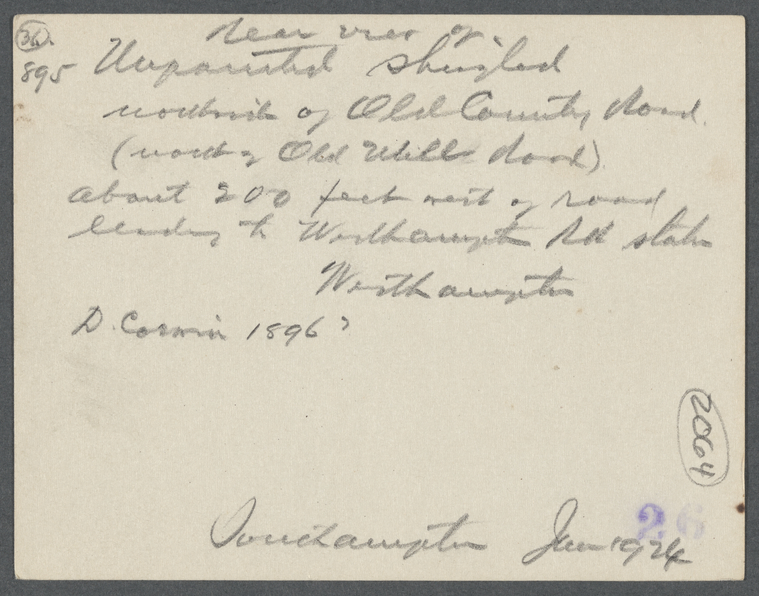 36.
Rear view of
895 Unpainted shingled
northside of Old Country Road.
(north of Old Mill Road).
about 200 feet west of road
leading to Westhampton RR station
Westhampton
D. Corwin 1896?
2064
26
Southampton Jan 1924